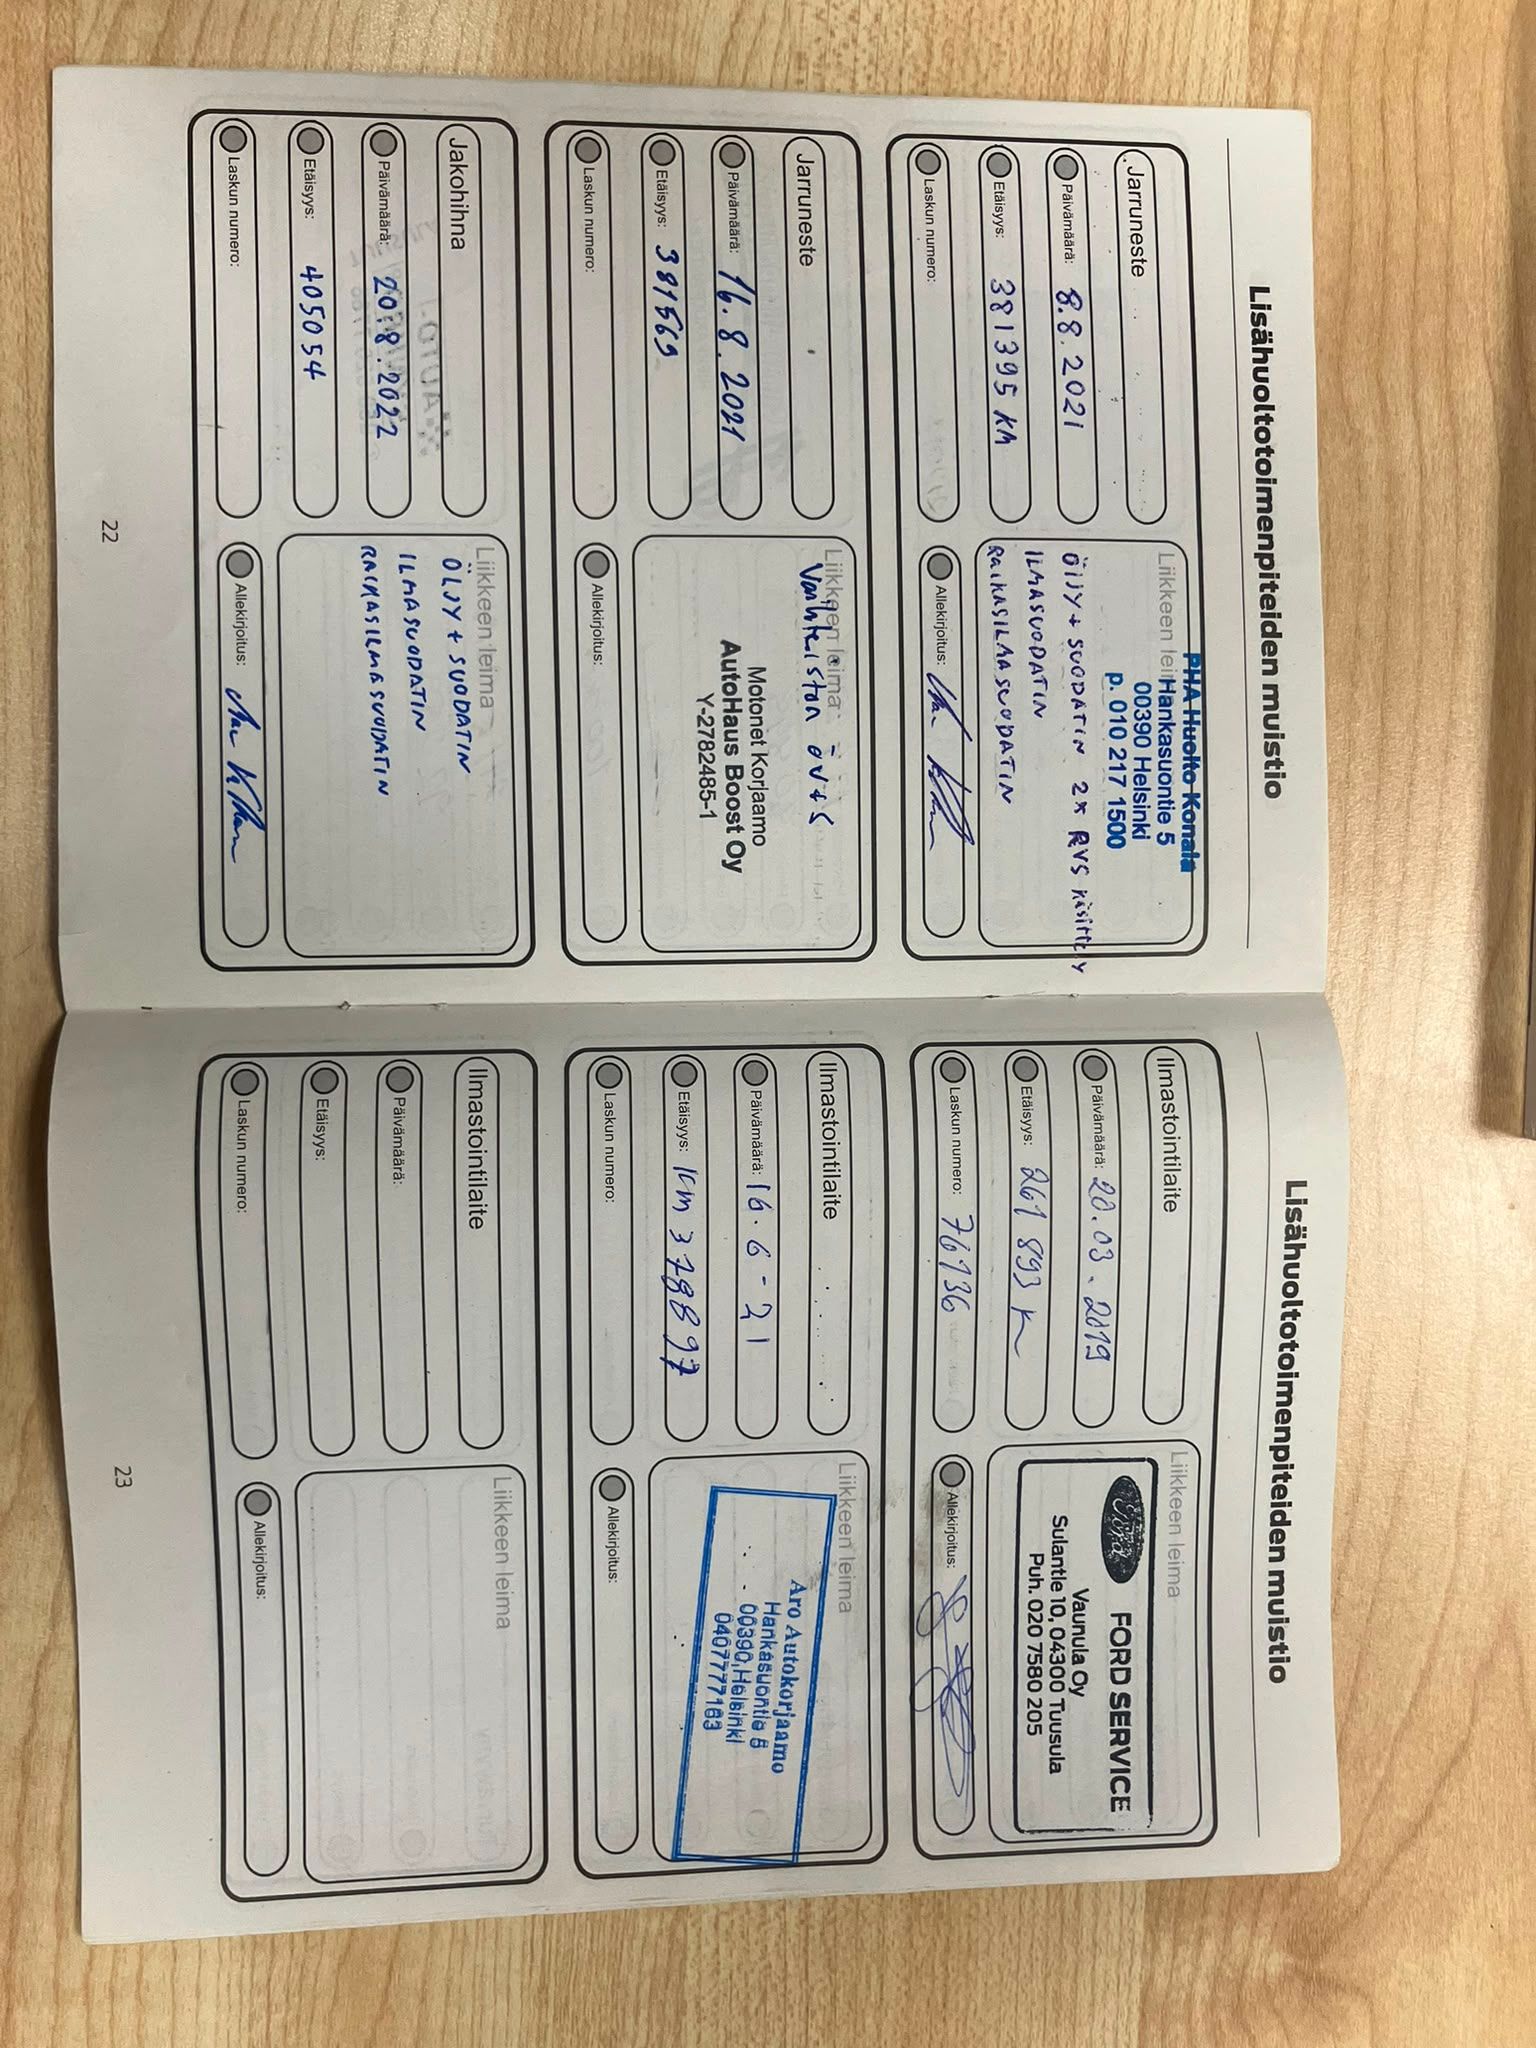 Lisähuoltotoimenpiteiden muistio
Jarruneste
Päivämäärä: 8.8.2021
Etäisyys: 381395 KM
Laskun numero:
PHA Huolto Konala
Liikkeen leima
Hankasuontie 5
00390 Helsinki
p. 010 217 1500
ÖLJY + SUODATIN 2x RVS käsittely
ILMASUODATIN
RAIKASILMASUODATIN
Allekirjoitus:
Jarruneste
Päivämäärä: 16.8.2021
Etäisyys: 381569
Laskun numero:
Liikkeen leima
Vaihteiston öv+s
Motonet Korjaamo
AutoHaus Boost Oy
Y-2782485-1
Allekirjoitus:
Jakohihna
Päivämäärä: 20.8.2022
Etäisyys: 405054
Laskun numero:
Liikkeen leima
ÖLJY + SUODATIN
ILMASUODATIN
RAIKASILMASUODATIN
Allekirjoitus:
22
Lisähuoltotoimenpiteiden muistio
Ilmastointilaite
Päivämäärä: 20.03.2019
Etäisyys: 261 893 K
Laskun numero: 76136
Liikkeen leima
Ford FORD SERVICE
Vaunula Oy
Sulantie 10, 04300 Tuusula
Puh. 020 7580 205
Allekirjoitus:
Ilmastointilaite
Päivämäärä: 16.6-21
Etäisyys: km 378897
Laskun numero:
Liikkeen leima
Aro Autokorjaamo
Hankasuontie 5
00390, Helsinki
0407777163
Allekirjoitus:
Ilmastointilaite
Päivämäärä:
Etäisyys:
Laskun numero:
Liikkeen leima
Allekirjoitus:
23